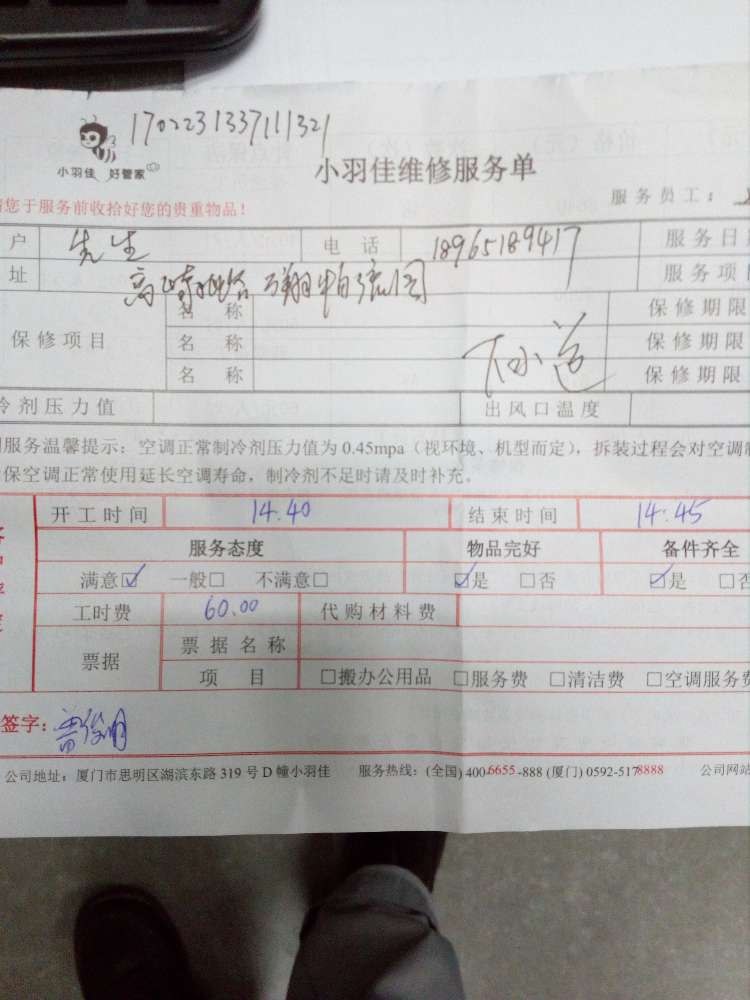 170223133711321
小羽佳 好管家
小羽佳维修服务单
服务员工：
您于服务前收拾好您的贵重物品！
户 先生 电话 18965189417 服务日
址 高崎 服务项
保修项目 名称 保修期限
名称 保修期限
名称 保修期限
冷剂压力值 出风口温度
服务温馨提示：空调正常制冷剂压力值为 0.45mpa（视环境、机型而定），拆装过程会对空调
保空调正常使用延长空调寿命，制冷剂不足时请及时补充。
开工时间 14.40 结束时间 14:45
服务态度 物品完好 备件齐全
满意☑ 一般□ 不满意□ ☑是 □否 ☑是 □否
工时费 60.00 代购材料费
票据 票据名称
项目 □搬办公用品 □服务费 □清洁费 □空调服务费
签字：
公司地址：厦门市思明区湖滨东路 319 号 D 幢小羽佳 服务热线：(全国) 400-6655-888 (厦门) 0592-5178888 公司网站